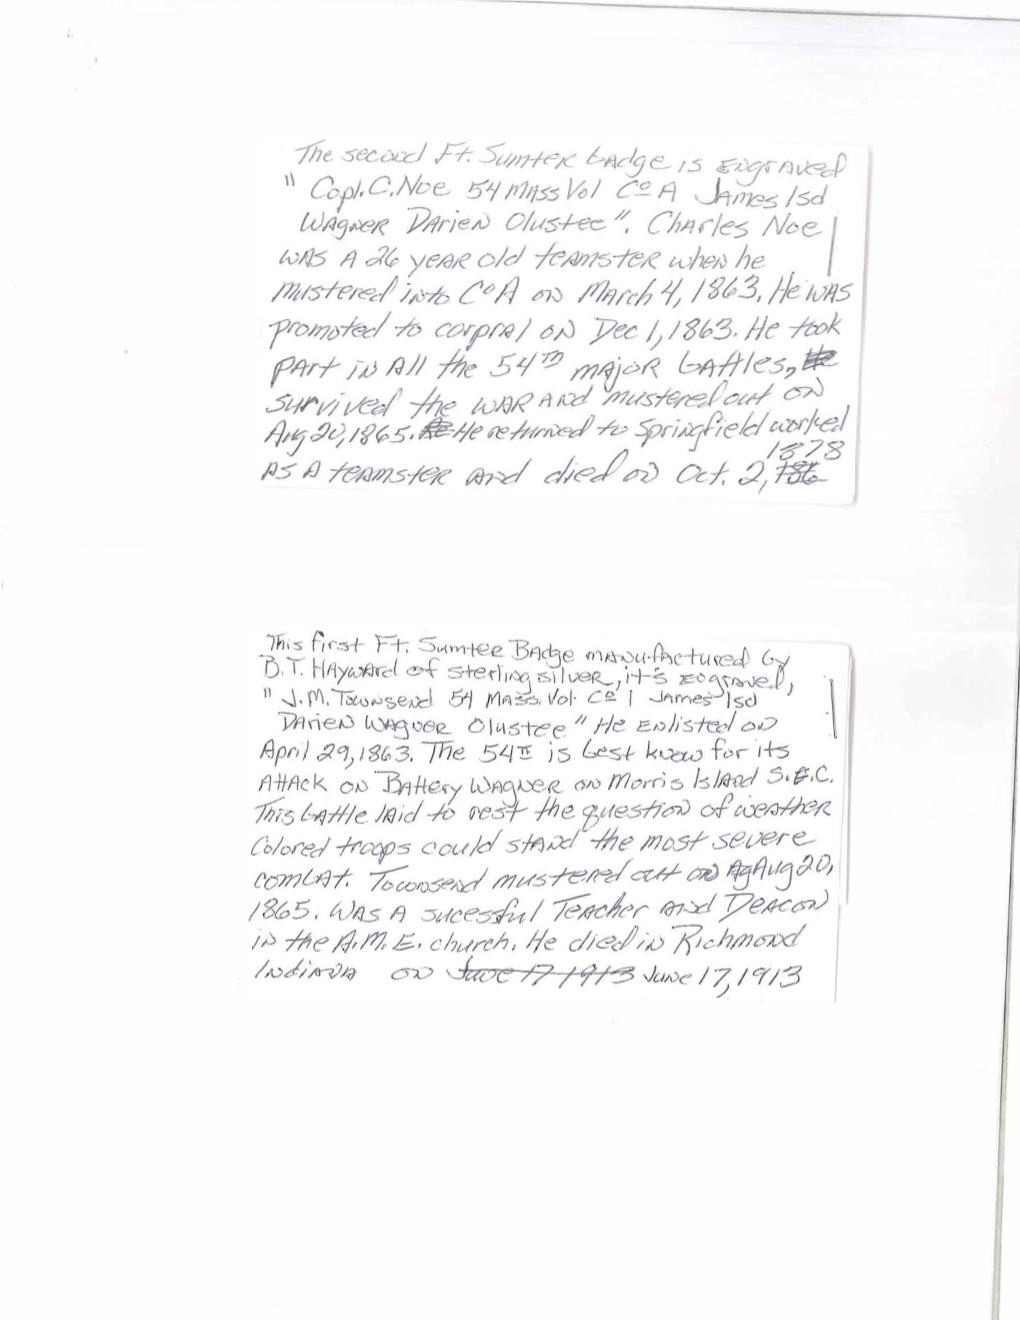 The second Ft. Sumter badge is engraved
" Copl. C. Noe 54 Mass Vol Co A James Isd
Wagner Darien Olustee". Charles Noe
was a 26 year old teamster when he
mustered into Co A on March 4, 1863. He was
promoted to corpral on Dec 1, 1863. He took
part in all the 54th major battles, He
survived the war and mustered out on
Aug 20, 1865. He He returned to Springfield worked
1878
as a teamster and died on Oct. 2, 186
This first Ft. Sumter Badge manufactured by
B.T. Hayward of sterling silver, it's engraved,
" J.M. Townsend 54 Mass. Vol. Co I James Isd
Darien Wagner Olustee" He enlisted on
April 29, 1863. The 54th is best know for its
attack on Battery Wagner on Morris Island S.C.
This battle laid to rest the question of weather
Colored troops could stand the most severe
combat. Townsend mustered out on Ag Aug 20,
1865. Was a sucessful Teacher and Deacon
in the A.M.E. church. He died in Richmond
Indiana on June 17 1913 June 17, 1913